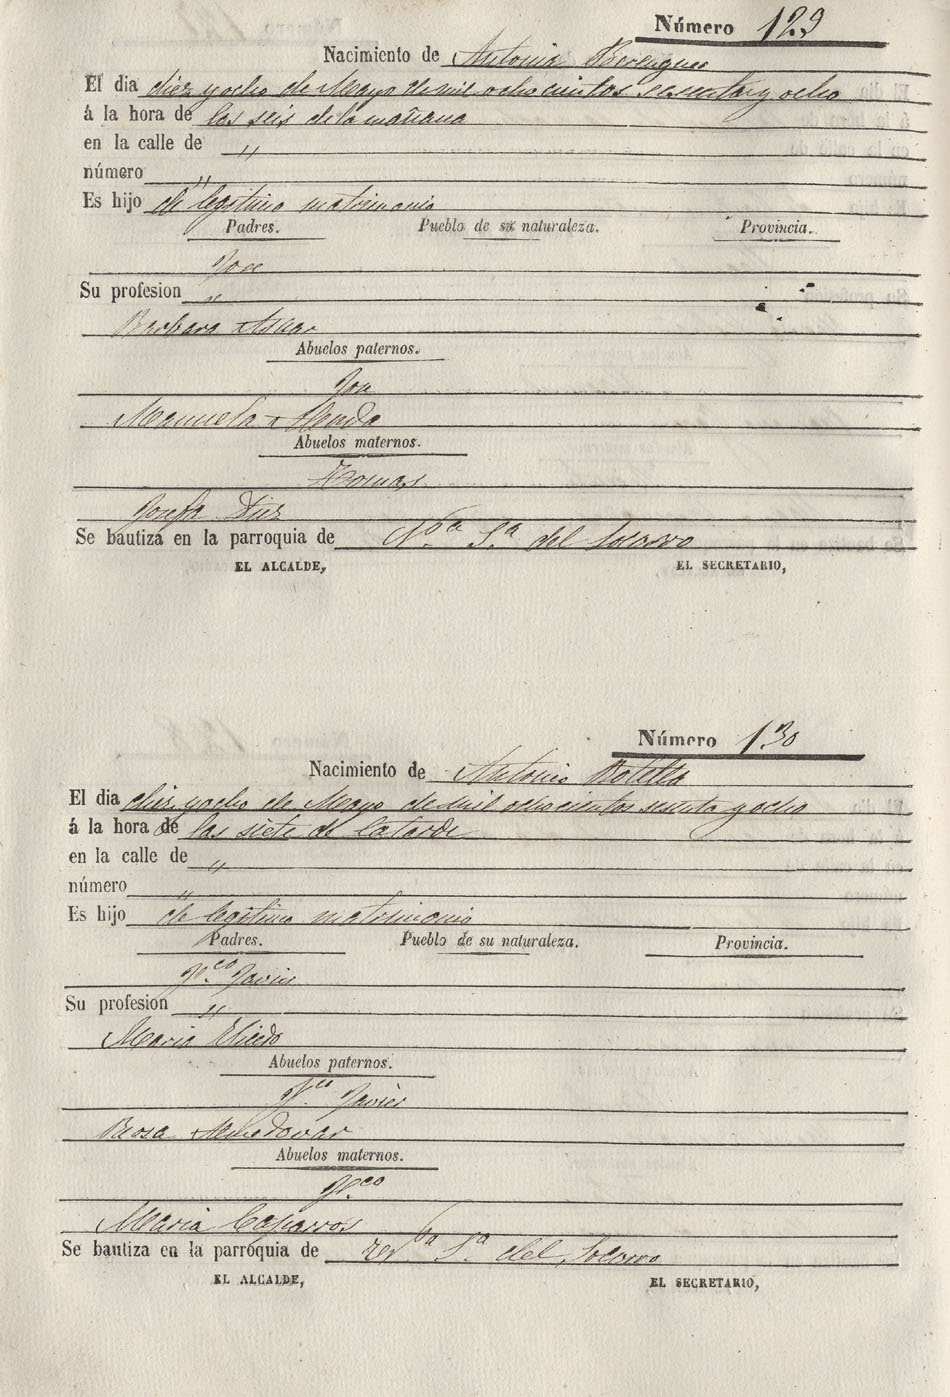 Número 129
Nacimiento de Antonia Berenguer
El dia diez y ocho de Mayo de mil ochocientos sesenta y ocho
á la hora de las seis de la mañana
en la calle de "
número "
Es hijo de legitimo matrimonio
Padres. Pueblo de su naturaleza. Provincia.
Jose
Su profesion "
Barbara Asnar
Abuelos paternos.
Jose
Manuela
Abuelos maternos.
Tomas
Josefa Diez
Se bautiza en la parroquia de Nª Sª del Socorro
EL ALCALDE, EL SECRETARIO,
Número 130
Nacimiento de Antonio Botella
El dia diez y ocho de Mayo de mil ochocientos sesenta y ocho
á la hora de las siete de la tarde
en la calle de "
número "
Es hijo de legitimo matrimonio
Padres. Pueblo de su naturaleza. Provincia.
Fco Javier
Su profesion "
Maria
Abuelos paternos.
Fco Javier
Rosa Almodovar
Abuelos maternos.
Fco
Maria Caparros
Se bautiza en la parroquia de Nª Sª del Socorro
EL ALCALDE, EL SECRETARIO,